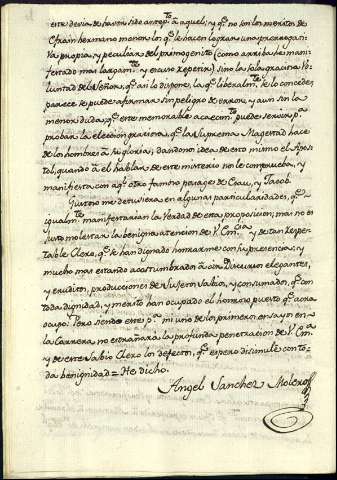 este devia de haver sido antep.to á aquel; y q.e no son los meritos de
Efrain hermano menor los q.e le hacen lograr una prerrogati-
va propia, y peculiar del primogenito (como arriba he mani-
festado mas largam.te y escuso repetir) sino la sola graciosa vo-
luntad del Señor, q.e asi lo dispone, la q.e liberalm.te se lo concede;
parece se puede afirmar sin peligro de errar, y aun sin la
menor duda, q.e este memorable acaecim.to puede servir p.a
probar la eleccion graciosa, q.e la Suprema Magestad hace
de los hombres á su gloria; dandonos idea de esto mismo el Apos-
tol, quando á el hablar de este misterio nos le comprueba, y
manifiesta con aq.l otro famoso pasage de Esau, y Jacob.
Justo me detuviera en algunas particularidades, q.e
igualm.te manifestarian la verdad de esta proposicion; mas no es
justo molestar la benigna atencion de V. Em.cia y de tan respe-
table Clero, q.e se han dignado honrarme con su presencia; y
mucho mas estando acostumbrados á oir Discursos elegantes,
y eruditos, producciones de Sugetos sabios, y consumados, q.e con
toda dignidad, y merito han ocupado el honroso puesto q.e aora
ocupo. Pero siendo este p.a mi uno de los primeros ensayos en
la Carrera, no estrañara la profunda penetracion de V. Em.a
y de este sabio Clero los defectos, q.e espero disimule con to-
da benignidad = He dicho.
Angel Sanchez Molero